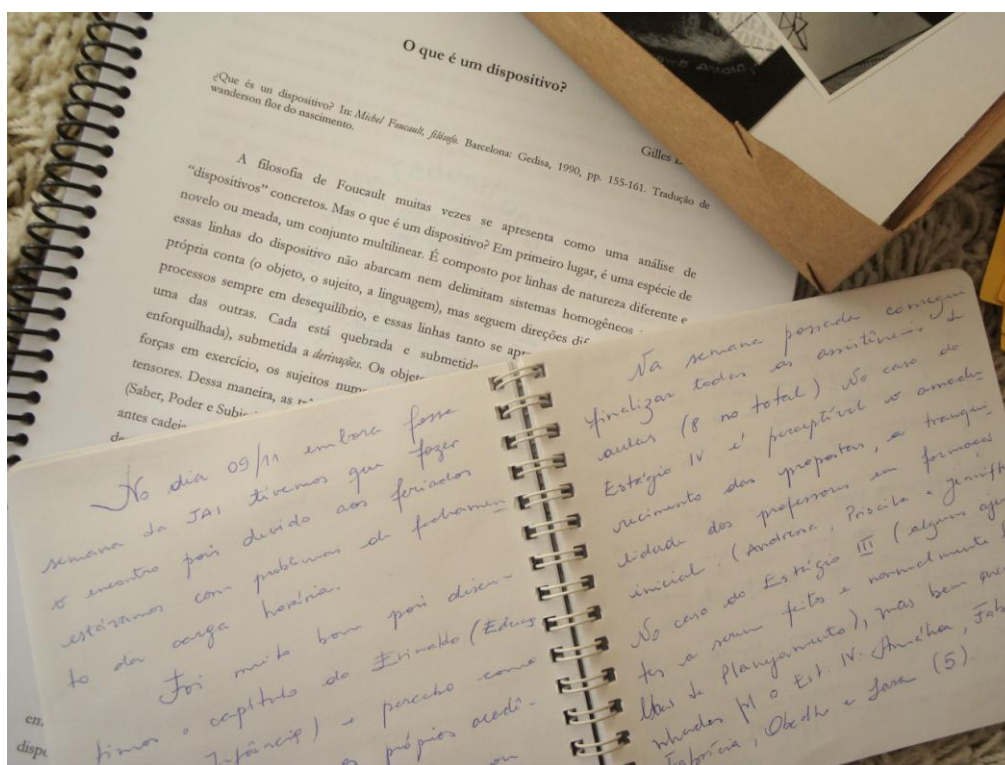 O que é um dispositivo?
Gilles
¿Que és un dispositivo? In: Michel Foucault, filósofo. Barcelona: Gedisa, 1990, pp. 155-161. Tradução de
wanderson flor do nascimento.
A filosofia de Foucault muitas vezes se apresenta como uma análise de
“dispositivos” concretos. Mas o que é um dispositivo? Em primeiro lugar, é uma espécie de
novelo ou meada, um conjunto multilinear. É composto por linhas de natureza diferente e
essas linhas do dispositivo não abarcam nem delimitam sistemas homogêneos
própria conta (o objeto, o sujeito, a linguagem), mas seguem direções
processos sempre em desequilíbrio, e essas linhas tanto se
uma das outras. Cada está quebrada e submetida
enforquilhada), submetida a derivações. Os
forças em exercício, os sujeitos
tensores. Dessa maneira, as
(Saber, Poder e
antes
No dia 09/11 embora fosse
semana da JAI tivemos que fazer
o encontro pois divido aos feriados
estávamos com problemas de fechamen
to da carga horária.
Foi muito bom pois discu-
timos o capítulo do Erinaldo
Infância) e percebo como
própios acadê-
Na semana passada consegui
finalizar todas as assistências
aulas (8 no total). No caso do
Estágio IV é perceptível o amadu-
recimento das propostas, a tranqui-
lidade dos professores em formação
inicial. (Andressa, Priscila e
No caso do Estágio III (alguns
tes a serem feitos e normalmente
de Planejamento), mas bem
nhados p/ o Est. IV: Amélia,
Fabrícia, e Lara (5).